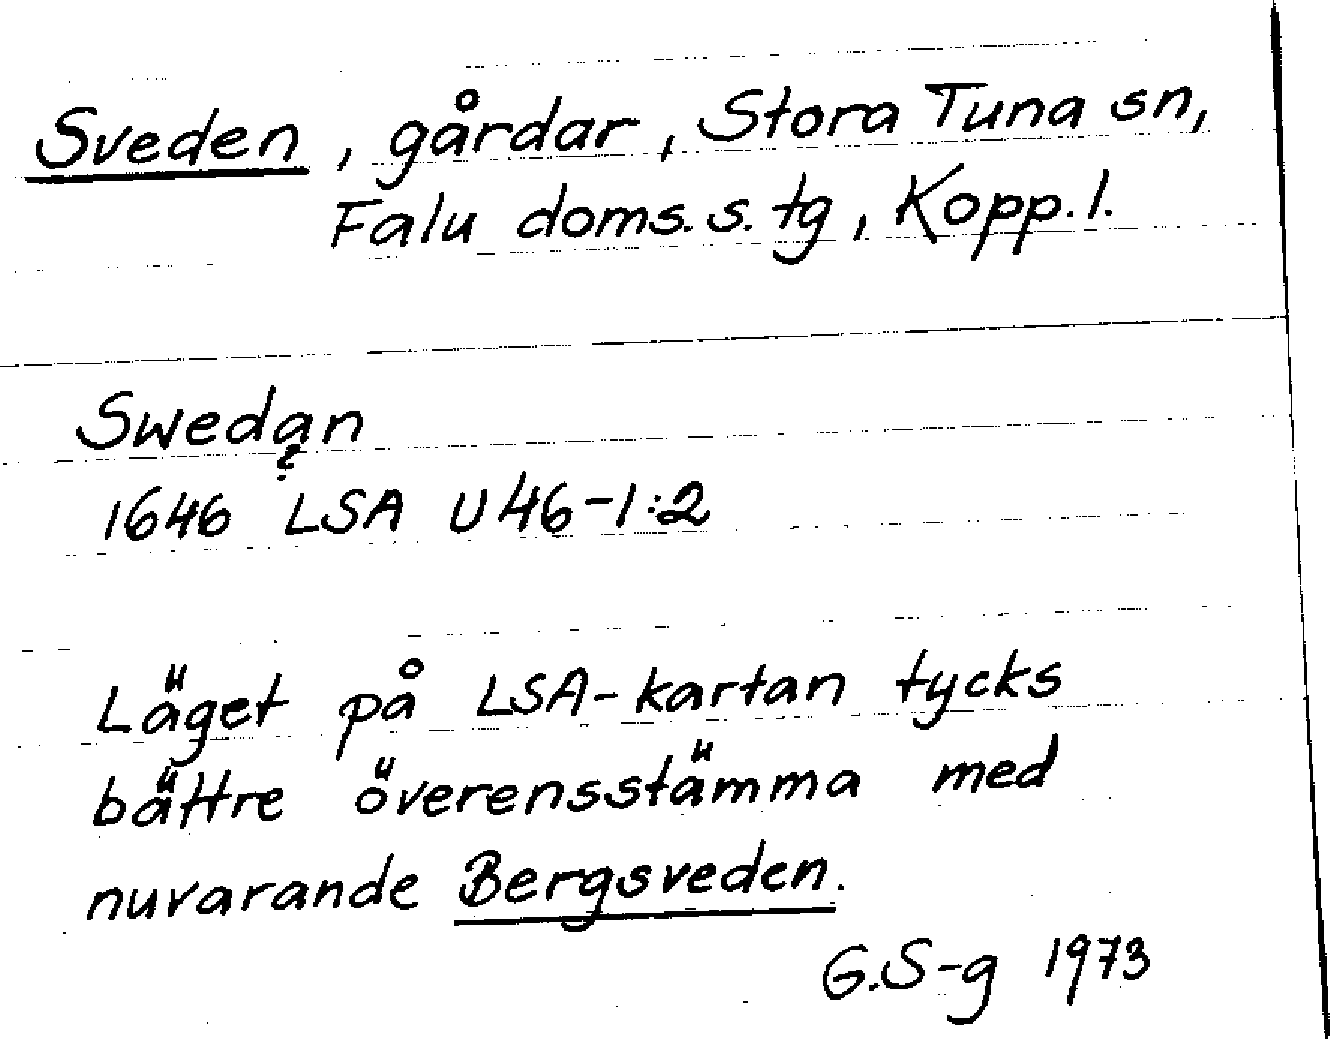 Sveden, gårdar, Stora Tuna sn,
Falu doms.s. tg, Kopp. l.
Swedan
?
1646 LSA U46-1:2
Läget på LSA-kartan tycks
bättre överensstämma med
nuvarande Bergsveden.
G.S-g 1973